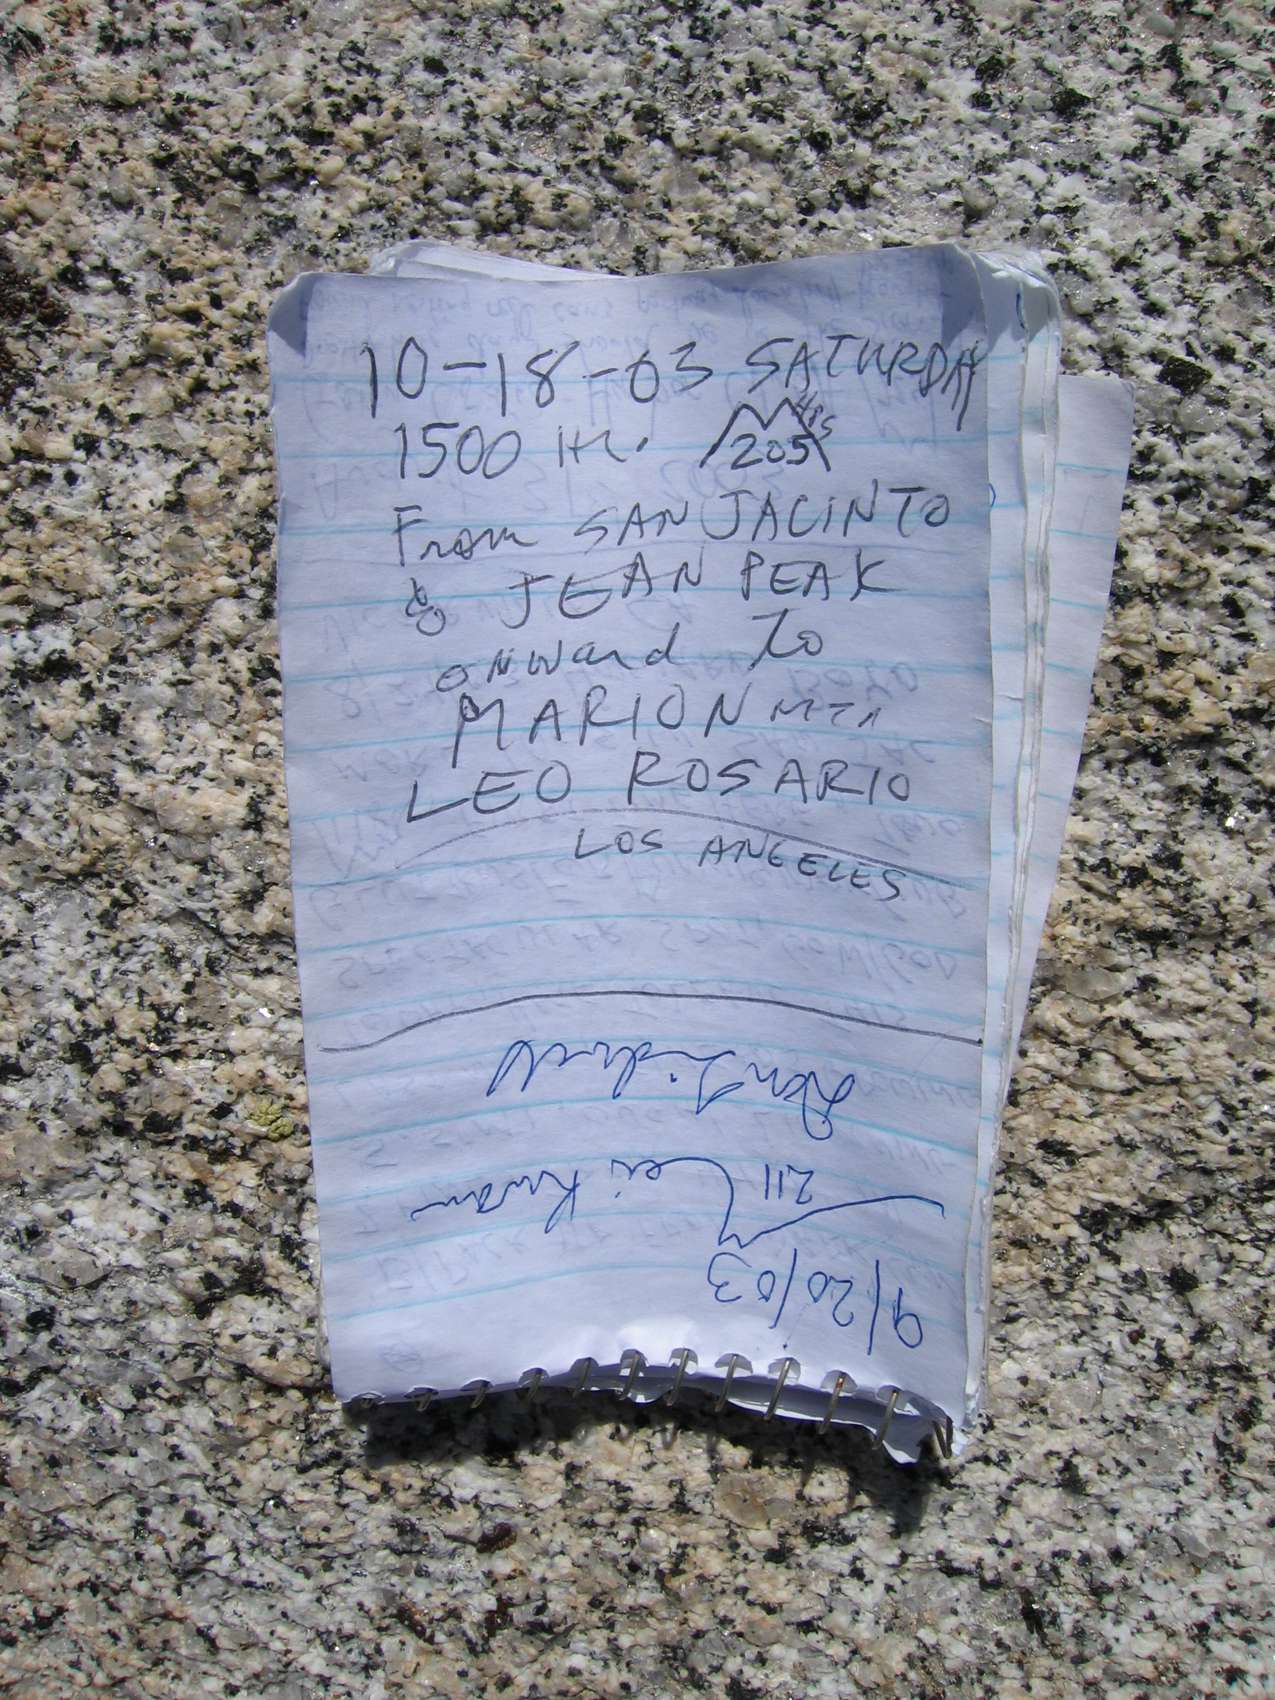 10-18-03 SATURDAY
1500 Hr. 205 HPS
From SAN JACINTO
& JEAN PEAK
onward To
MARION MTN
LEO ROSARIO
LOS ANGELES
9/20/03
211 Lei Kwan